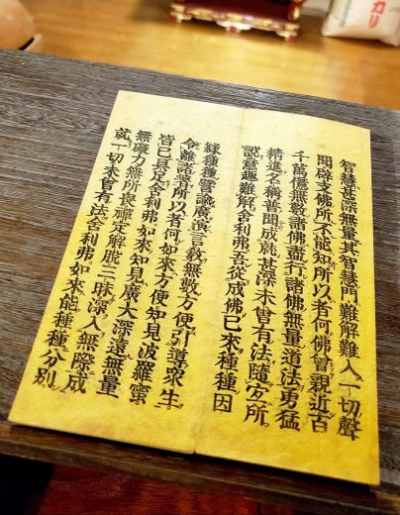 智慧甚深無量其智慧門難解難入一切聲
聞辟支佛所不能知所以者何佛曾親近百
千萬億無數諸佛盡行諸佛無量道法勇猛
精進名稱普聞成就甚深未曾有法隨宜所
說意趣難解舍利弗吾從成佛已來種種因
緣種種譬諭廣演言教無數方便引導眾生
令離諸著所以者何如來方便知見波羅蜜
皆已具足舍利弗如來知見廣大深遠無量
無礙力無所畏禪定解脫三昧深入無際成
就一切未曾有法舍利弗如來能種種分別